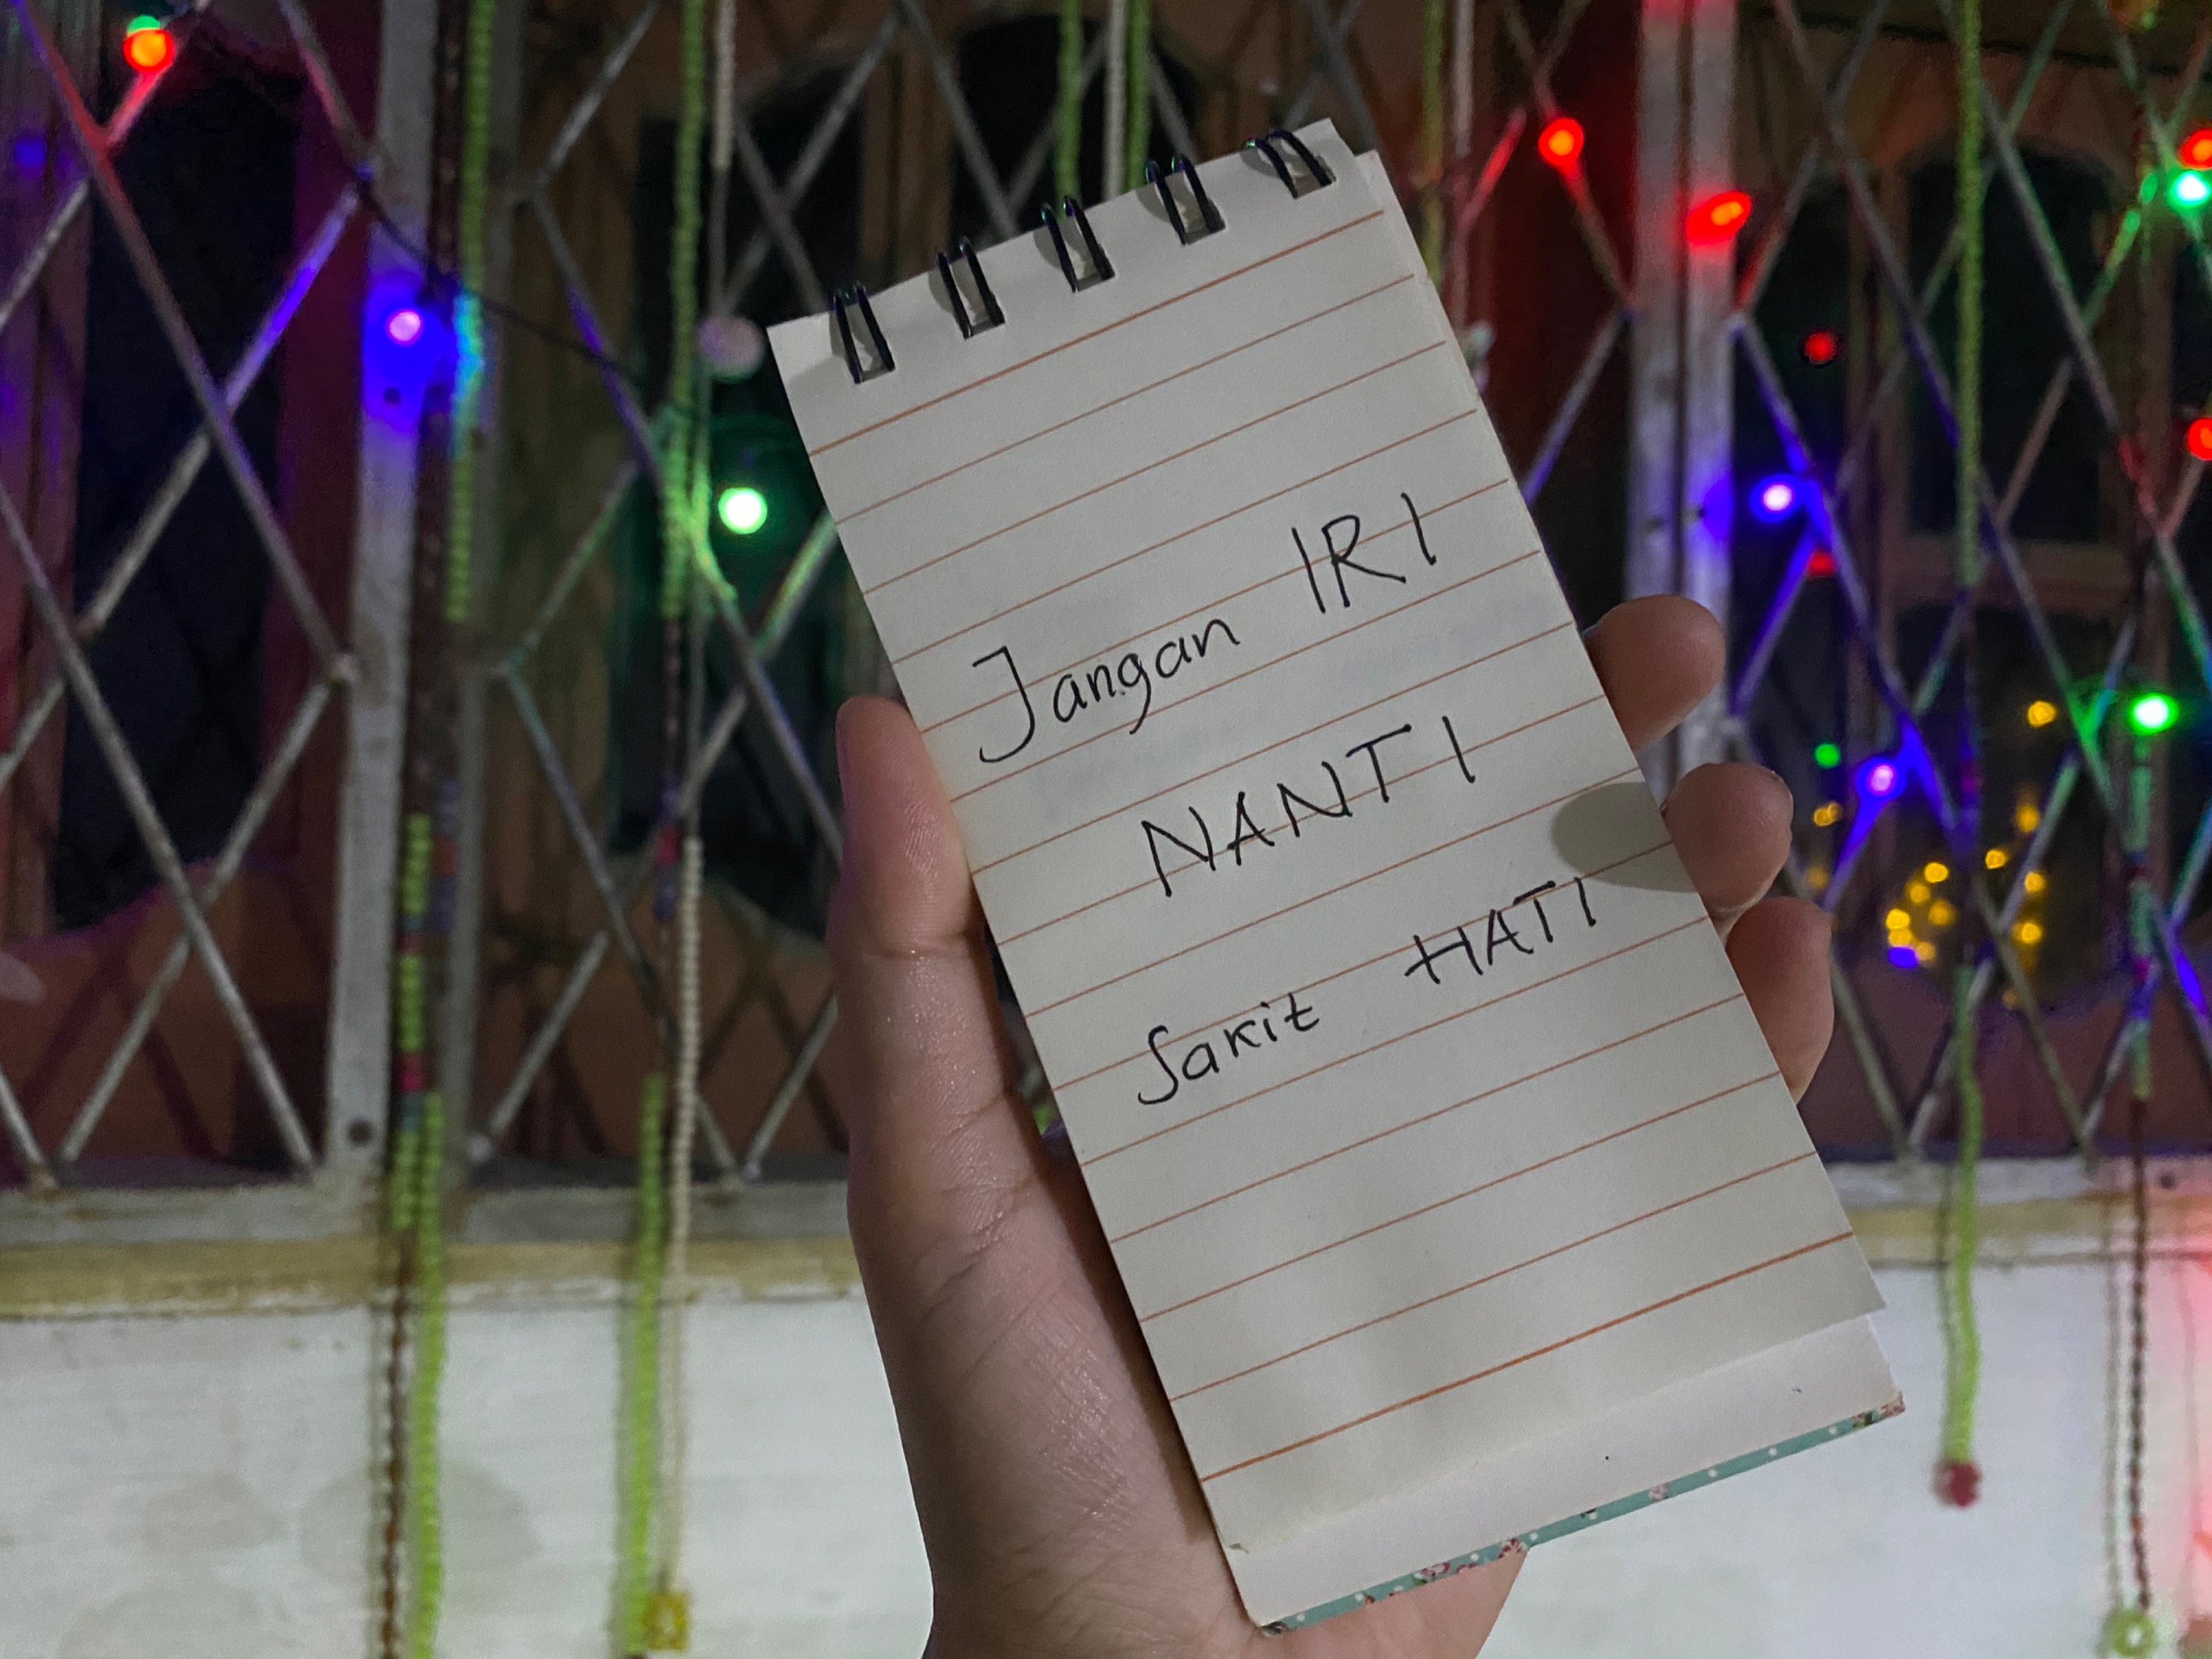 Jangan IRI
NANTI
Sakit HATI